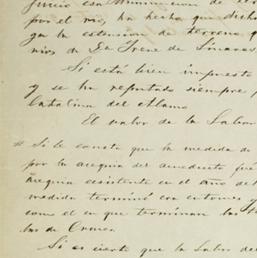 juicio esa disminucion de ter
por el rio, ha hecho que dicho
ga la estension de terreno q
nios de Da Irene de Linares.
Si está bien impuesto
y se ha reputado siempre p
Catalina del Alamo
El valor de la Labor
Si le consta que la medida de
por la acequia del acueducto
acequia existente en el año de
medida terminó con entonces y
como el en que terminan las
bas de Cruces
Si es cierto que la Labor del